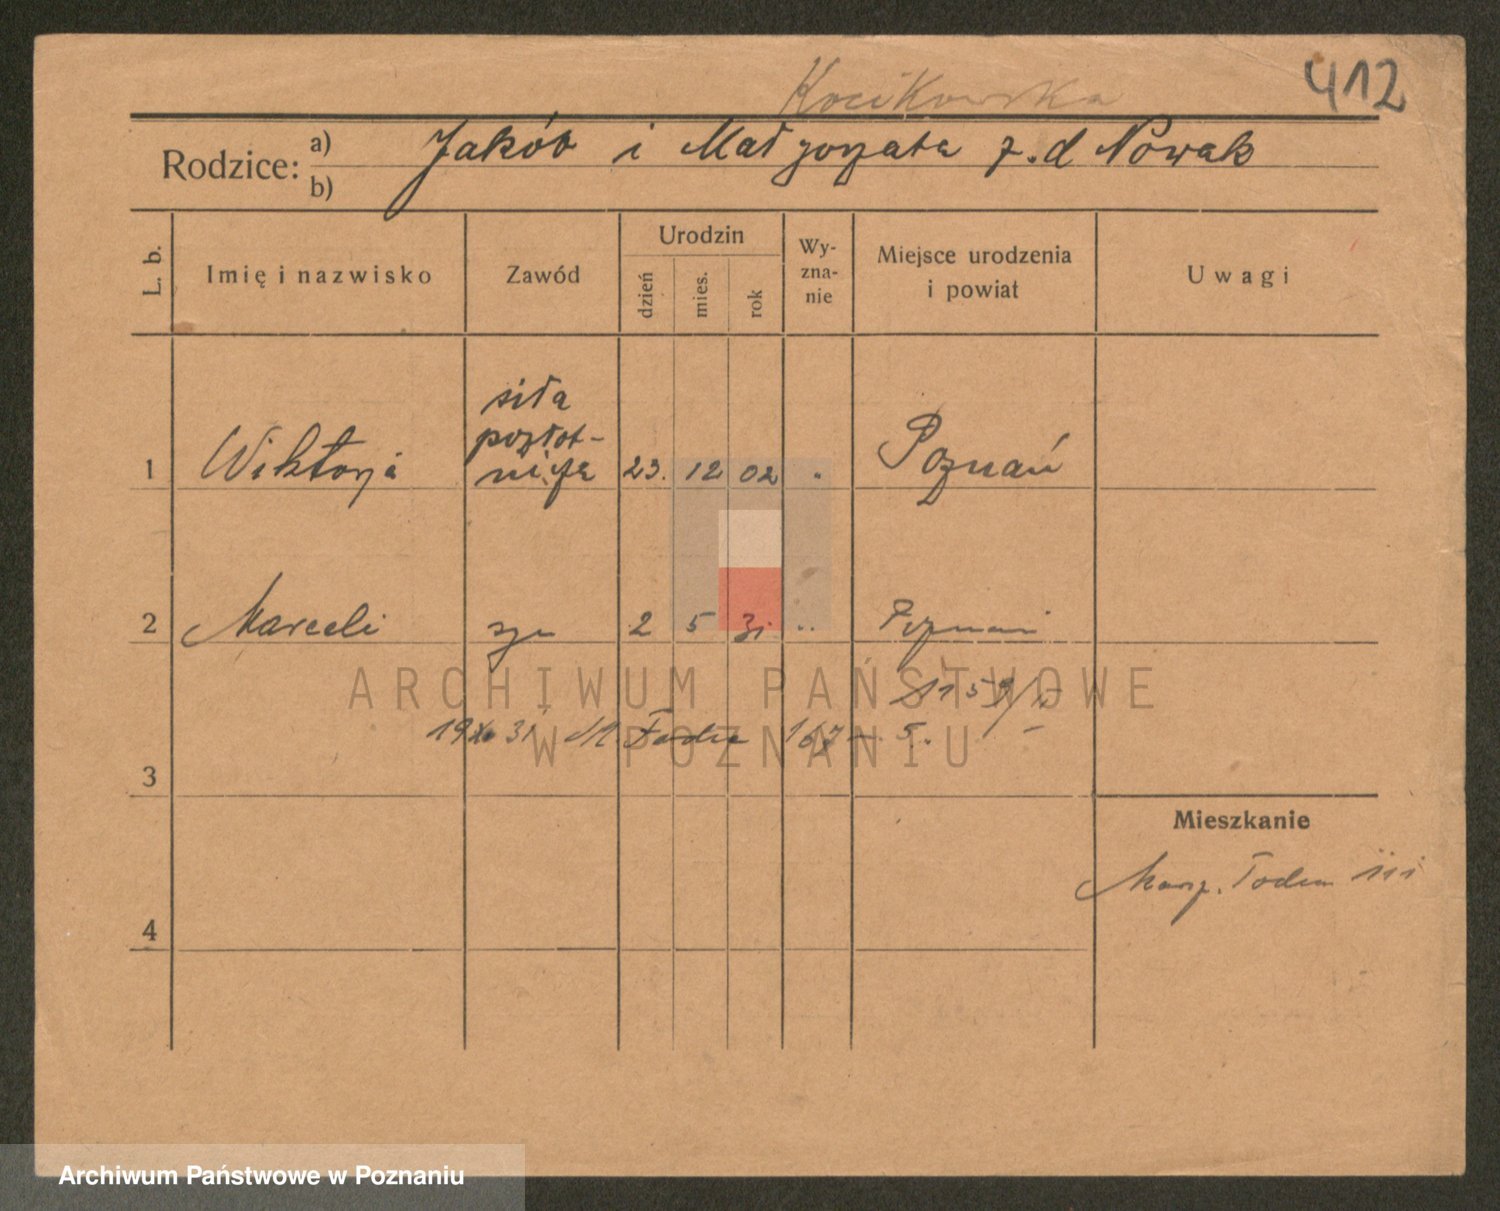 Kocikowska
412
Rodzice: a) Jakób i Małgorzata z.d Nowak
b)
L. b.
Imię i nazwisko
Zawód
Urodzin
dzień
mies.
rok
Wy-
zna-
nie
Miejsce urodzenia
i powiat
Uwagi
siła
pozłot-
1 Wiktorja nicza 23. 12 02 " Poznań
2 Marceli syn 2 5 31 " Poznań
1159/
19 31 M. 167 5.
3
Mieszkanie
4
ARCHIWUM PAŃSTWOWE
W POZNANIU
Archiwum Państwowe w Poznaniu